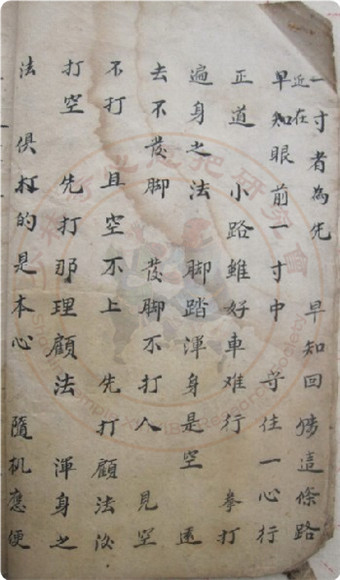 一寸者為先　早知回這條路
近在
早知眼前一寸中　守住一心行
正道　小路雖好車难行　拳打
遍身之法　脚踏渾身是空　遠
去不發脚　發脚不打人　見空
不打　且空不上　先打顧法没
打空　先打那理顧法　渾身之
法　俱打的是本心　隨机應便
史研究會